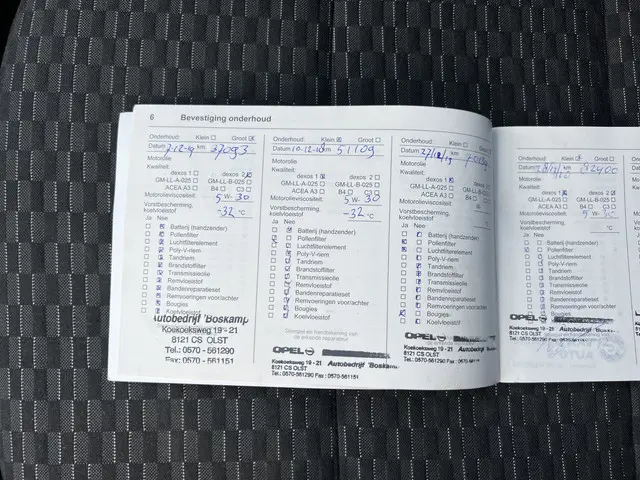 6 Bevestiging onderhoud
Onderhoud: Klein Groot
Datum km. 37093
Motorolie
Kwaliteit:
dexos 1
GM-LL-A-025 GM-LL-B-025
ACEA A3 B4 C3
Motorolieviscositeit: 5 W- 30
Vorstbescherming,
koelvloeistof -32 °C
Ja Nee
Batterij (handzender)
Pollenfilter
Luchtfilterelement
Poly-V-riem
Tandriem
Brandstoffilter
Transmissieolie
Remvloeistof
Bandenreparatieset
Remvoeringen voor/achter
Bougies
Koelvloeistof
Autobedrijf 'Boskamp
Koekoeksweg 19 - 21
8121 CS OLST
Tel.: 0570 - 561290
Fax: 0570 - 561151
Onderhoud: Klein Groot
Datum 10-12-18 km 51109
Motorolie
Kwaliteit:
dexos 1 dexos 2
GM-LL-A-025 GM-LL-B-025
ACEA A3 B4 C3
Motorolieviscositeit: 5 W- 30
Vorstbescherming,
koelvloeistof -32 °C
Ja Nee
Batterij (handzender)
Pollenfilter
Luchtfilterelement
Poly-V-riem
Tandriem
Brandstoffilter
Transmissieolie
Remvloeistof
Bandenreparatieset
Remvoeringen voor/achter
Bougies
Koelvloeistof
OPEL
Koekoeksweg 19 - 21 Autobedrijf 'Boskamp
8121 CS OLST
Tel.: 0570-561290 Fax : 0570-561151
Onderhoud: Klein Groot
Datum km
Motorolie
Kwaliteit:
dexos 1
GM-LL-A-025 GM-LL-B-025
ACEA A3 B4 C3
Motorolieviscositeit: 5 W- 30
Vorstbescherming,
koelvloeistof -32 °C
Ja Nee
Batterij (handzender)
Pollenfilter
Luchtfilterelement
Poly-V-riem
Tandriem
Brandstoffilter
Transmissieolie
Remvloeistof
Bandenreparatieset
Remvoeringen voor/achter
Bougies
Koelvloeistof
OPEL
Koekoeksweg 19 - 21 Autobedrijf
8121 CS OLST
Tel.: 0570-561290 Fax : 0570-561151
Onderhoud: Klein Groot
Datum km
Motorolie
Kwaliteit:
dexos 1 dexos 2
GM-LL-A-025 GM-LL-B-025
ACEA A3 B4 C3
Motorolieviscositeit: 5 W-
Vorstbescherming,
koelvloeistof °C
Ja Nee
Batterij (handzender)
Pollenfilter
Luchtfilterelement
Poly-V-riem
Tandriem
Brandstoffilter
Transmissieolie
Remvloeistof
Bandenreparatieset
Remvoeringen voor/achter
Bougies
Koelvloeistof
OPEL
Koekoeksweg 19 - 21
8121 CS OLST
Tel.: 0570-561290